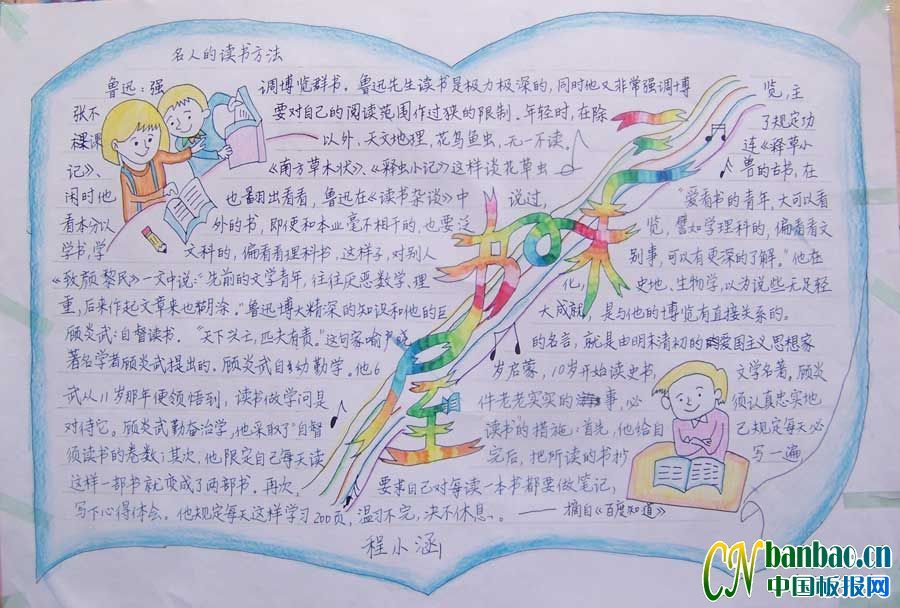 名人的读书方法
鲁迅：强调博览群书。鲁迅先生读书是极力极深的，同时他又非常强调博览，主
张不要对自己的阅读范围作过狭的限制。年轻时，在除了规定功
课课以外，天文地理，花鸟鱼虫，无一不读。连《释草小
记》、《南方草木状》、《释虫小记》这样谈花草虫兽的古书，在
闲时他也翻出看看，鲁迅在《读书杂谈》中说过，"爱看书的青年，大可以看
看本分以外的书，即使和本业毫不相干的，也要泛览，譬如学理科的，偏看看文
学书，学文科的，偏看看理科书，这样子，对别人别事，可以有更深的了解。"他在
《致颜黎民》一文中说："先前的文学青年，往往厌恶数学，理化，史地，生物学，以为说些无足轻
重，后来作起文章来也糊涂。"鲁迅博大精深的知识和他的巨大成就，是与他的博览有直接关系的。
顾炎武：自督读书。"天下兴亡，匹夫有责。"这句家喻户晓的名言，就是由明末清初的爱国主义思想家
著名学者顾炎武提出的。顾炎武自幼勤学。他6岁启蒙，10岁开始读史书，文学名著。顾炎
武从11岁那年便领悟到，读书做学问是件老老实实的事，必须认真忠实地
对待它。顾炎武勤奋治学，他采取了"自督读书"的措施：首先，他给自己规定每天必
须读书的卷数；其次，他限定自己每天读完后，把所读的书抄写一遍
这样一部书就变成了两部书。再次，要求自己对每读一本书都要做笔记，
写下心得体会。他规定每天这样学习200页，温习不完，决不休息。——摘自《百度知道》
程小涵
CNbanbao.cn
中国板报网